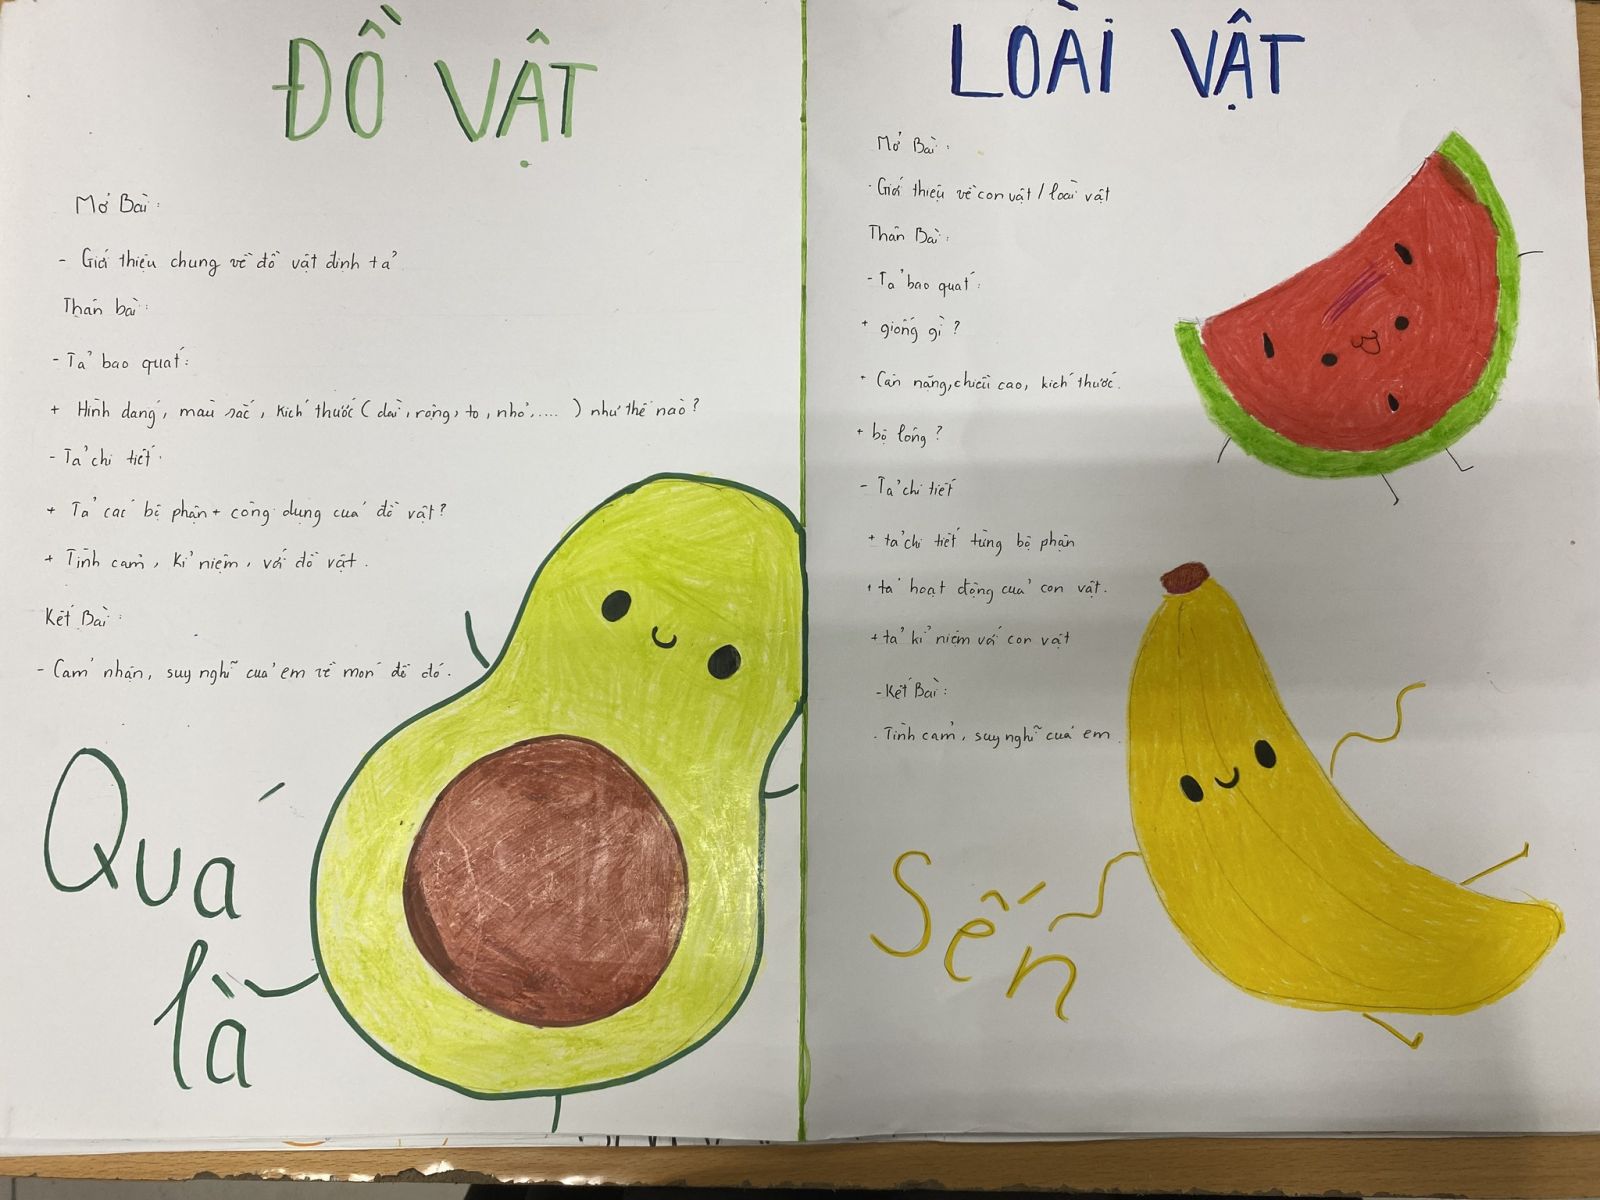 ĐỒ VẬT
Mở Bài:
- Giới thiệu chung về đồ vật định tả
Thân bài:
- Tả bao quát:
+ Hình dáng, màu sắc, kích thước (dài, rộng, to, nhỏ,....) như thế nào?
- Tả chi tiết.
+ Tả các bộ phận + công dụng của đồ vật?
+ Tình cảm, kỉ niệm, với đồ vật.
Kết Bài:
- Cảm nhận, suy nghĩ của em về món đồ đó.
Quá
là
LOÀI VẬT
Mở Bài:
- Giới thiệu về con vật / loài vật
Thân Bài:
- Tả bao quát:
+ giống gì?
+ Cân nặng, chiều cao, kích thước.
+ bộ lông?
- Tả chi tiết
+ tả chi tiết từng bộ phận
+ tả hoạt động của con vật.
+ tả kỉ niệm với con vật
- Kết Bài:
. Tình cảm, suy nghĩ của em
Sến